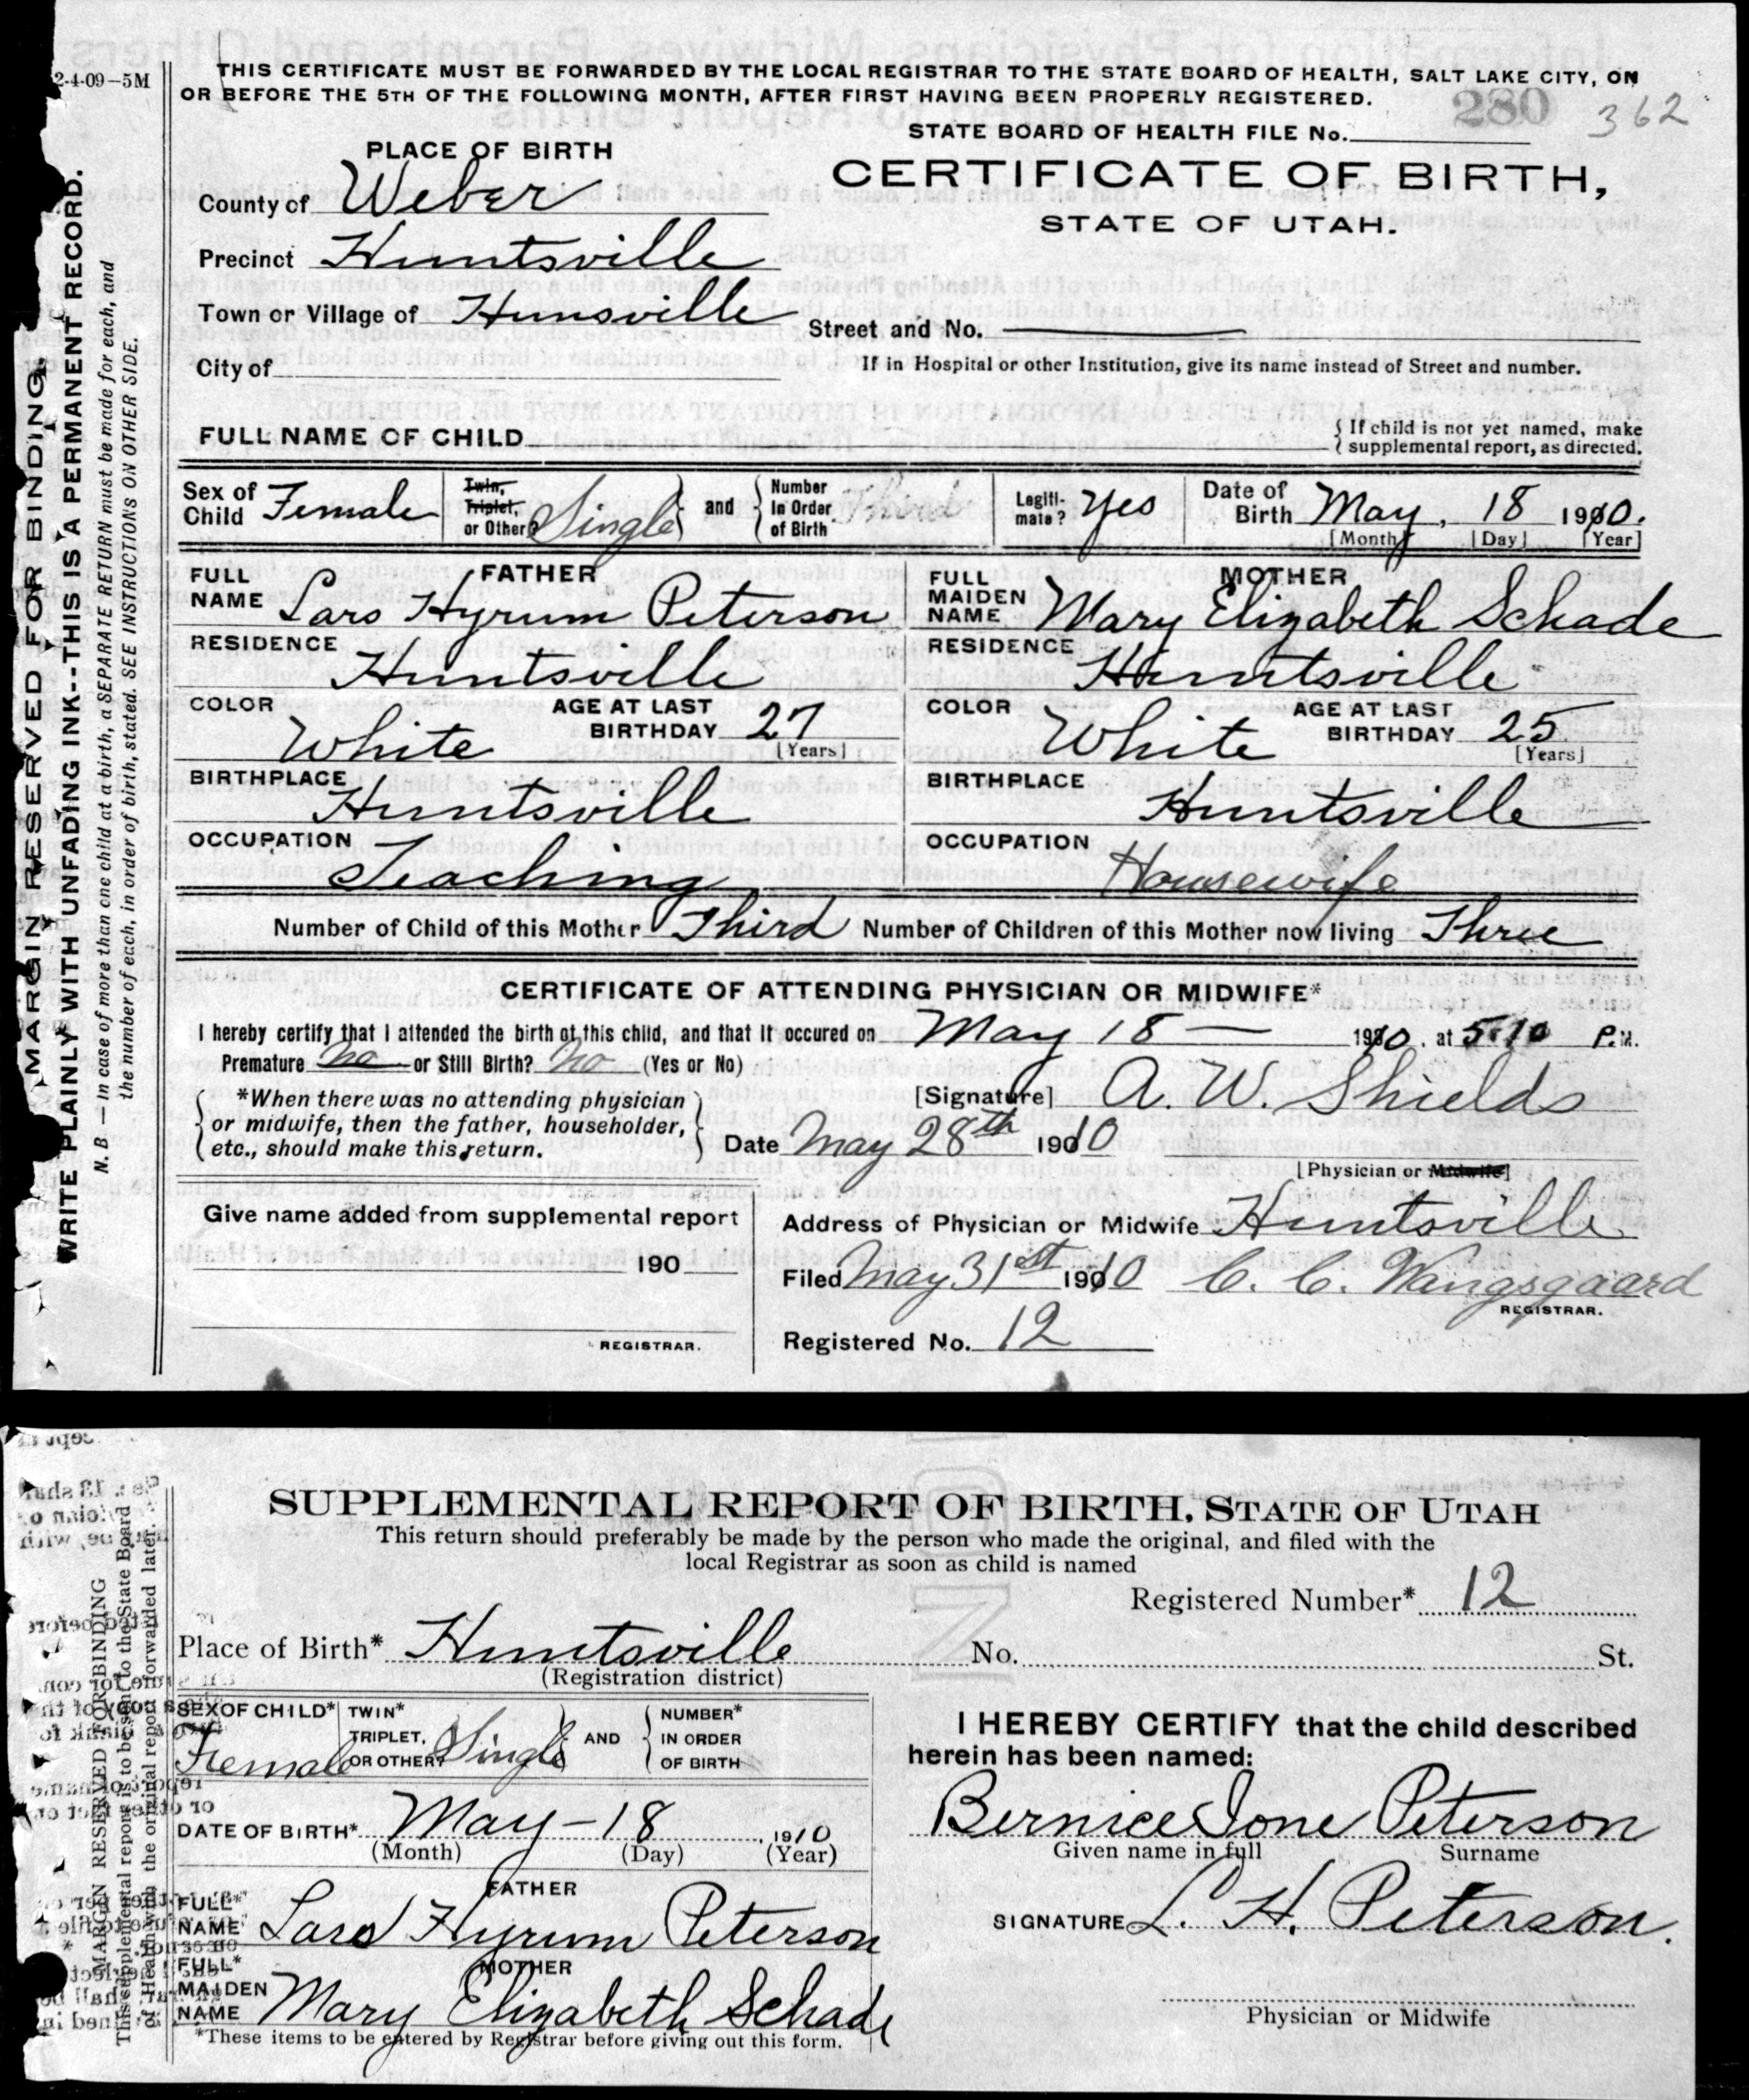 2-4-09—5M
THIS CERTIFICATE MUST BE FORWARDED BY THE LOCAL REGISTRAR TO THE STATE BOARD OF HEALTH, SALT LAKE CITY, ON
OR BEFORE THE 5TH OF THE FOLLOWING MONTH, AFTER FIRST HAVING BEEN PROPERLY REGISTERED.
280 362
STATE BOARD OF HEALTH FILE No.
PLACE OF BIRTH
CERTIFICATE OF BIRTH,
STATE OF UTAH.
County of Weber
Precinct Huntsville
Town or Village of Hunsville Street and No.
City of If in Hospital or other Institution, give its name instead of Street and number.
FULL NAME OF CHILD { If child is not yet named, make
supplemental report, as directed.
Sex of Child Female Twin, Triplet, or Other? Single and Number In Order of Birth Third Legiti-mate? Yes Date of Birth May, 18 1910.
[Month] [Day] [Year]
FATHER MOTHER
FULL NAME Lars Hyrum Peterson FULL MAIDEN NAME Mary Elizabeth Schade
RESIDENCE Huntsville RESIDENCE Huntsville
COLOR White AGE AT LAST BIRTHDAY 27 [Years] COLOR White AGE AT LAST BIRTHDAY 25 [Years]
BIRTHPLACE Huntsville BIRTHPLACE Huntsville
OCCUPATION Teaching OCCUPATION Housewife
Number of Child of this Mother Third Number of Children of this Mother now living Three
CERTIFICATE OF ATTENDING PHYSICIAN OR MIDWIFE*
I hereby certify that I attended the birth of this child, and that it occured on May 18 — 1910. at 5:10 P.M.
Premature no or Still Birth? no (Yes or No)
[Signature] A. W. Shields
*When there was no attending physician
or midwife, then the father, householder,
etc., should make this return.
Date May 28th 1910
[Physician or Midwife]
Give name added from supplemental report
190
REGISTRAR.
Address of Physician or Midwife Huntsville
Filed May 31st 1910 C. C. Wangsgaard
REGISTRAR.
Registered No. 12
MARGIN RESERVED FOR BINDING.
WRITE PLAINLY WITH UNFADING INK--THIS IS A PERMANENT RECORD.
N. B.—In case of more than one child at a birth, a SEPARATE RETURN must be made for each, and
the number of each, in order of birth, stated. SEE INSTRUCTIONS ON OTHER SIDE.
SUPPLEMENTAL REPORT OF BIRTH, STATE OF UTAH
This return should preferably be made by the person who made the original, and filed with the
local Registrar as soon as child is named
Registered Number* 12
Place of Birth* Huntsville No. St.
(Registration district)
SEX OF CHILD* Female TWIN* TRIPLET, OR OTHER? Single AND NUMBER* IN ORDER OF BIRTH
DATE OF BIRTH* May – 18 1910
(Month) (Day) (Year)
FATHER
FULL* NAME Lars Hyrum Peterson
MOTHER
FULL* MAIDEN NAME Mary Elizabeth Schade
*These items to be entered by Registrar before giving out this form.
I HEREBY CERTIFY that the child described
herein has been named:
Bernice Ione Peterson
Given name in full Surname
SIGNATURE L. H. Peterson.
Physician or Midwife
MARGIN RESERVED FOR BINDING
This supplemental report is to be sent to the State Board
of Health with the original report forwarded later.